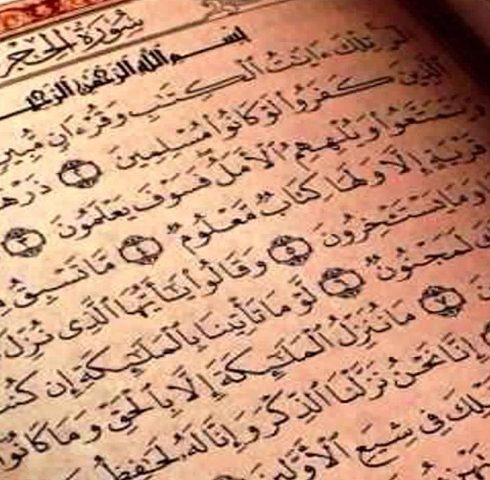 سُورَةُ الحِجْر
بِسْمِ اللَّهِ الرَّحْمَٰنِ الرَّحِيمِ
الٓر تِلْكَ ءَايَٰتُ ٱلْكِتَٰبِ وَقُرْءَانٍ مُّبِينٍ
ٱلَّذِينَ كَفَرُوا۟ لَوْ كَانُوا۟ مُسْلِمِينَ ٢ ذَرْهُمْ
وَيَتَمَتَّعُوا۟ وَيُلْهِهِمُ ٱلْأَمَلُ فَسَوْفَ يَعْلَمُونَ ٣
قَرْيَةٍ إِلَّا وَلَهَا كِتَابٌ مَّعْلُومٌ ٤ مَّا تَسْبِقُ
وَمَا يَسْتَـْٔخِرُونَ ٥ وَقَالُوا۟ يَٰٓأَيُّهَا ٱلَّذِى نُزِّلَ
لَمَجْنُونٌ ٦ لَّوْ مَا تَأْتِينَا بِٱلْمَلَٰٓئِكَةِ إِن كُنتَ
٧ مَا نُنَزِّلُ ٱلْمَلَٰٓئِكَةَ إِلَّا بِٱلْحَقِّ وَمَا كَانُوٓا۟
إِنَّا نَحْنُ نَزَّلْنَا ٱلذِّكْرَ وَإِنَّا لَهُۥ لَحَٰفِظُونَ
فِى شِيَعِ ٱلْأَوَّلِينَ